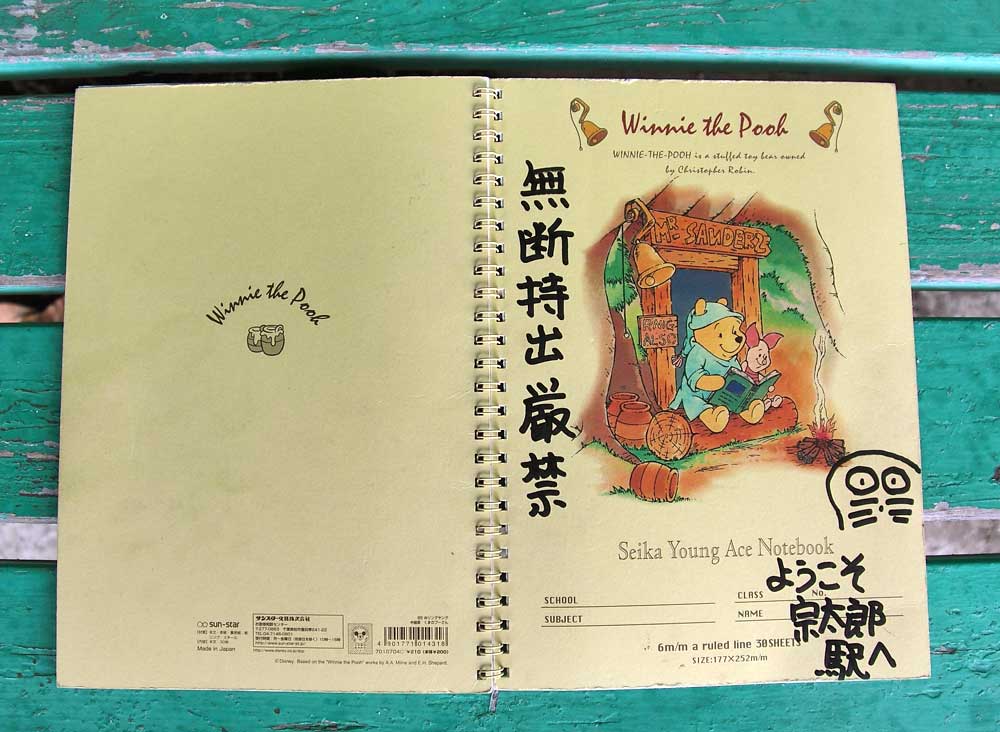 Winnie the Pooh
sun-star
Made in Japan
サンスター文具株式会社
¥210
4901771014318
© Disney. Based on the "Winnie the Pooh" works by A.A. Milne and E.H. Shepard.
Winnie the Pooh
WINNIE-THE-POOH is a stuffed toy bear owned
by Christopher Robin.
無断持出厳禁
MR. SANDERZ
RNIG
ALSO
Seika Young Ace Notebook
SCHOOL
CLASS
No.
SUBJECT
NAME
6m/m a ruled line 30SHEETS
SIZE:177×252m/m
ようこそ
宗太郎
駅へ